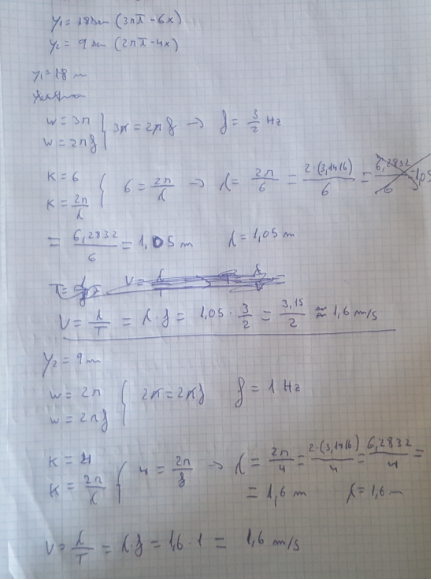 y₁ = 18 sin (3πt - 6x)
y₂ = 9 sin (2πt - 4x)
y₁ = 18 m
w = 3π
w = 2πf
3π = 2πf → f = 3/2 Hz
K = 6
K = 2π/λ
6 = 2π/λ → λ = 2π/6 = 2·(3,1416)/6 = 6,2832/6 = 1,05
= 6,2832/6 = 1,05 m λ = 1,05 m
V = λ/T = λ·f = 1,05 · 3/2 = 3,15/2 ≈ 1,6 m/s
y₂ = 9 m
w = 2π
w = 2πf
2π = 2πf f = 1 Hz
K = 4
K = 2π/λ
4 = 2π/λ → λ = 2π/4 = 2·(3,1416)/4 = 6,2832/4 =
= 1,6 m λ = 1,6 m
V = λ/T = λ·f = 1,6 · 1 = 1,6 m/s